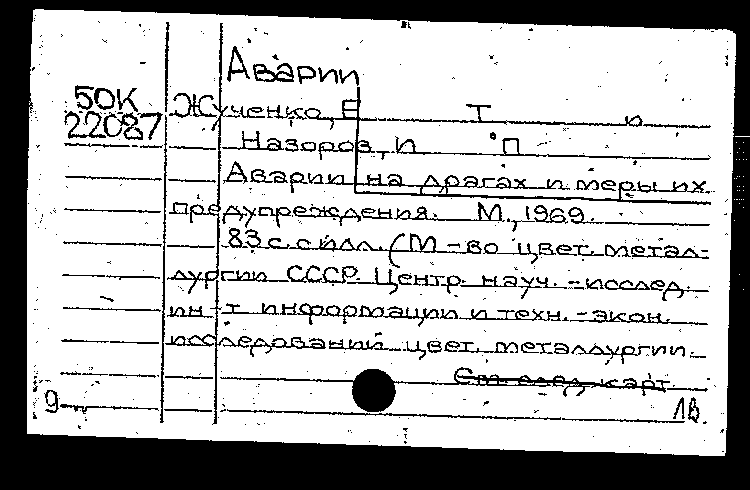 Аварии
50К
22087
Жученко, Е Т и
Назоров, И П
Аварии на драгах и меры их
предупреждения. М., 1969.
83 с. с илл. (М-во цвет. метал-
лургии СССР. Центр. науч.-исслед.
ин-т информации и техн.-экон.
исследований цвет. металлургии.
См. след. карт.
9 1в.